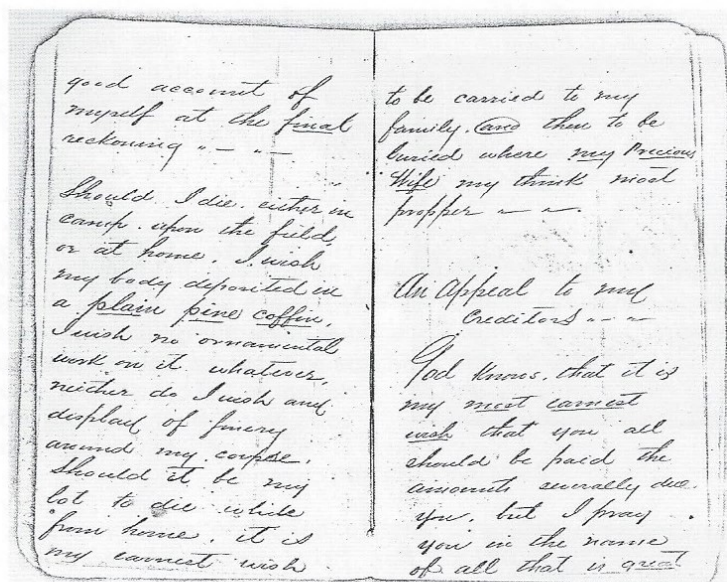 good account of
myself at the final
reckoning " — " —
Should I die. either in
camp. upon the field,
or at home, I wish
my body deposited in
a plain pine coffin,
I wish no ornamental
work on it whatever,
neither do I wish any
display of finery
around my corpse.
Should it be my
lot to die while
from home, it is
my earnest wish
to be carried to my
family. and then to be
buried where my Precious
Wife my think most
propper — — .
An Appeal to my
Creditors " — "
God knows. that it is
my most earnest
wish that you all
should be paid the
amounts severally due
you, but I pray
you in the name
of all that is great